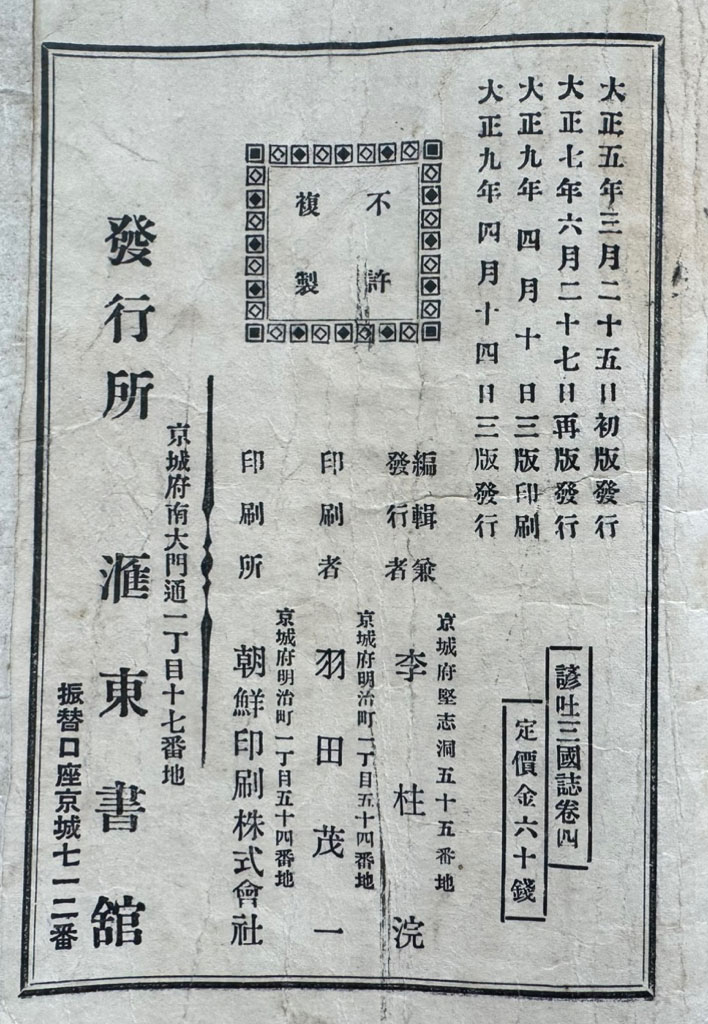 大正五年三月二十五日初版發行
大正七年六月二十七日再版發行
大正九年四月十日三版印刷
大正九年四月十四日三版發行
諺吐三國誌卷四
定價金六十錢
不許
複製
京城府堅志洞五十五番地
編輯兼
發行者 李柱浣
京城府明治町一丁目五十四番地
印刷者 羽田茂一
京城府明治町一丁目五十四番地
印刷所 朝鮮印刷株式會社
京城府南大門通一丁目十七番地
發行所 滙東書舘
振替口座京城七一二番